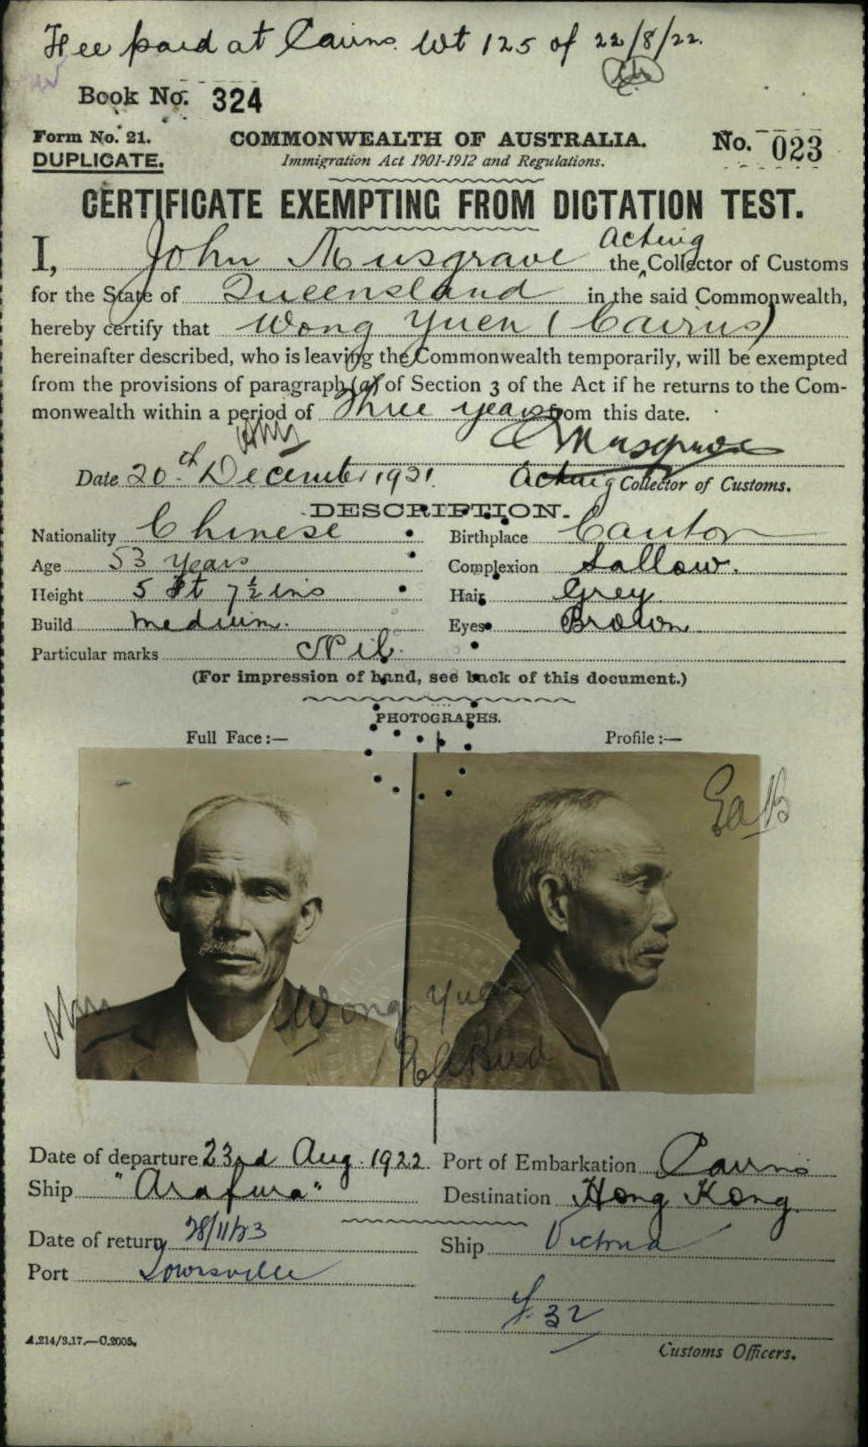 Fee paid at Cairns Wt 125 of 22/8/22.
Book No. 324
Form No. 21.
DUPLICATE.
COMMONWEALTH OF AUSTRALIA.
Immigration Act 1901-1912 and Regulations.
No. 023
CERTIFICATE EXEMPTING FROM DICTATION TEST.
I, John Musgrave the Acting Collector of Customs
for the State of Queensland in the said Commonwealth,
hereby certify that Wong Yuen (Cairns)
hereinafter described, who is leaving the Commonwealth temporarily, will be exempted
from the provisions of paragraph (a) of Section 3 of the Act if he returns to the Com-
monwealth within a period of Three years from this date.
Musgrave
Date 20th December 1921
Acting Collector of Customs.
DESCRIPTION.
Nationality Chinese Birthplace Canton
Age 53 years Complexion Sallow.
Height 5 ft 7½ ins Hair Grey
Build medium. Eyes Brown
Particular marks Nil.
(For impression of hand, see back of this document.)
PHOTOGRAPHS.
Full Face:— Profile:—
Wong Yuen
Date of departure 23rd Aug. 1922. Port of Embarkation Cairns
Ship "Arafura" Destination Hong Kong.
Date of return 28/11/23 Ship Victoria
Port Townsville
32
A.214/3.17.—C.2005.
Customs Officers.